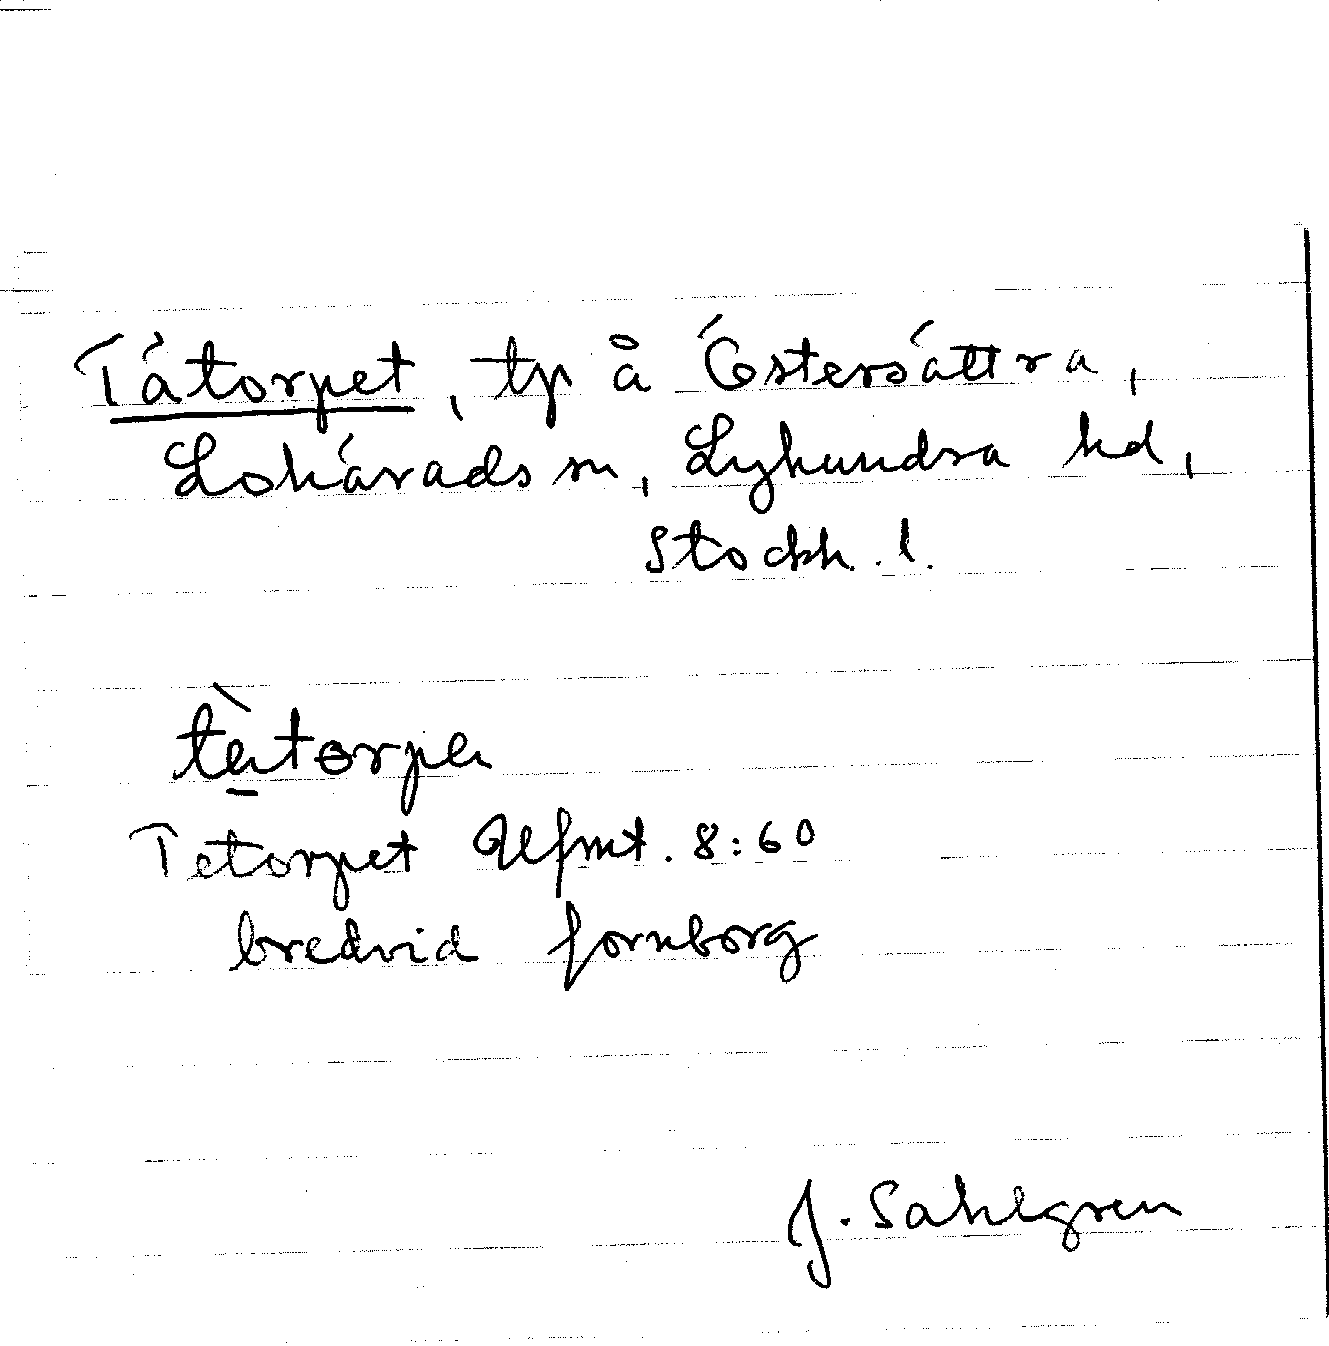 Tátorpet, tp å Óstersáttra,
Lohárads sn, Lyhundra hd,
Stockh. l.
tètɵrpa
Tetorpet Ufmt. 8:60
bredvid fornborg
J. Sahlgren